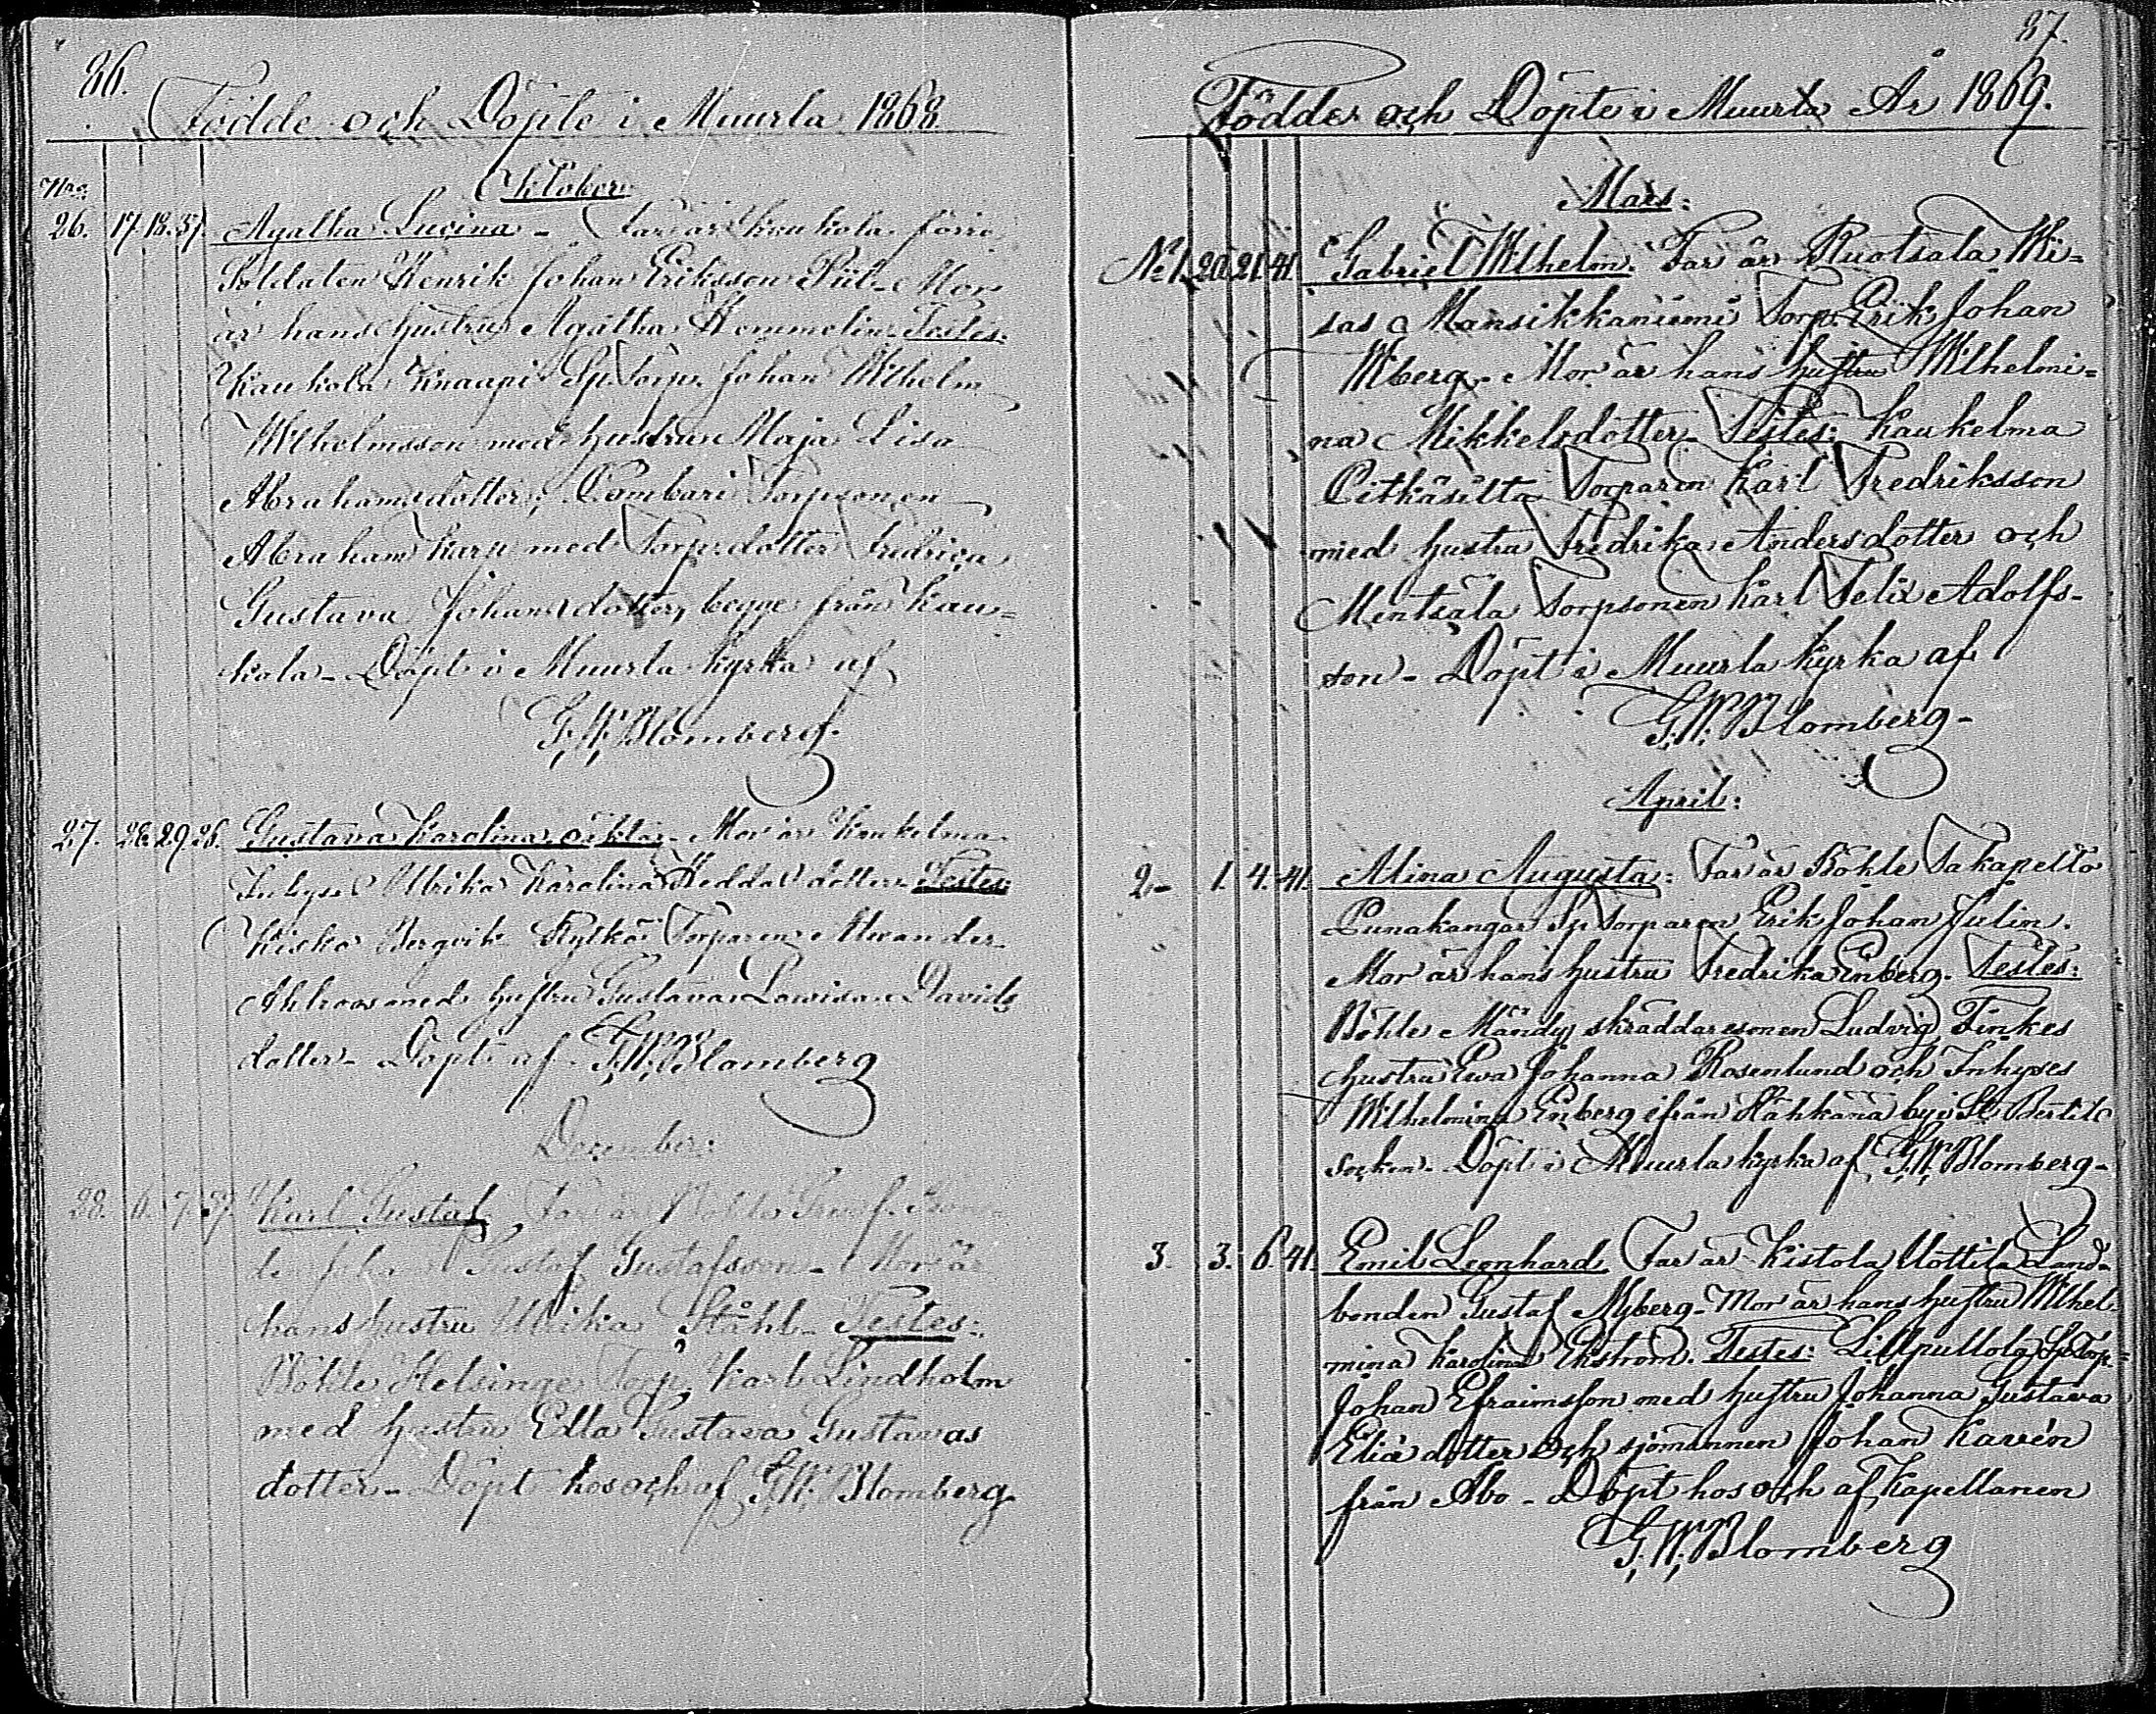 86.
Födde och Döpte i Muurla 1868.
Oktober
Nro.
26. 17. 18. 37. Agatha Lucina - Far är Kaukola förre
Soldaten Henrik Johan Eriksson Piil - Mor
är hans hustru Agatha Hemmelin - Testes:
Kaukola Knaapi Sp. Torp. Johan Wilhelm
Wilhelmsson med hustrun Maja Lisa
Abrahamsdotter; Torpsonen
Abraham Karp med Torp. dotter Fredrica
Gustava Johansdotter, begge från Kau=
kola - Döpt i Muurla kyrka af
G. W. Blomberg.
27. 28. 29. 26. Gustava Karolina oäkta - Mor är Kaukelma
Inhyses Ulrika Karolina Heddas dotter - Testes:
Kisko Bergvik Torparen Alexander
Ahlroos med hustru Gustava Lovisa Davids
dotter - Döpt af G. W. Blomberg
December:
28. 6. 7. 37. Karl Gustaf Far är Böhle
den Johan Gustaf Gustafsson - Mor är
hans hustru Ulrika Ståhl - Testes:
Böhle Helsinge Torp. Karl Lindholm
med hustru Edla Gustava Gustavas
dotter - Döpt hos och af G. W. Blomberg
87.
Födde och Döpte i Muurla År 1869.
Mars:
No 1. 20. 21. 41. Gabriel Wilhelm. Far är Ruotsala Wii=
sas Mansikkaniemi Torp. Erik Johan
Wiberg - Mor är hans hustru Wilhelmi=
na Mikkelsdotter - Testes: Kaukelma
Pitkäsilta Torparen Karl Fredriksson
med hustru Fredrika Andersdotter och
Mentsälä Torpsonen Karl Felix Adolfs-
son - Döpt i Muurla Kyrka af
G. W. Blomberg -
April:
2 - 1. 4. 41. Alina Augusta: Far är Böhle Takapelto
Punakangas Sp Torparen Erik Johan Julin.
Mor är hans hustru Fredrika Enberg. Testes:
Böhle Mändy skräddaresonen Ludvig Finkes
hustru Eva Johanna Rosenlund och Inhyses
Wilhelmina Enberg ifrån by i St Bertils
socken - Döpt i Muurla kyrka af G. W. Blomberg -
3. 3. 6. 41. Emil Leonhard Far är Kistola Uottila Land-
bonden Gustaf Nyberg - Mor är hans hustru Wilhel-
mina Karolina Ekström. Testes: Lillpullola Sp Torp=
Johan Efraimsson med hustru Johanna Gustava
Eliædotter och sjömannen Johan Kavén
från Åbo - Döpt hos och af Kapellanen
G. W. Blomberg